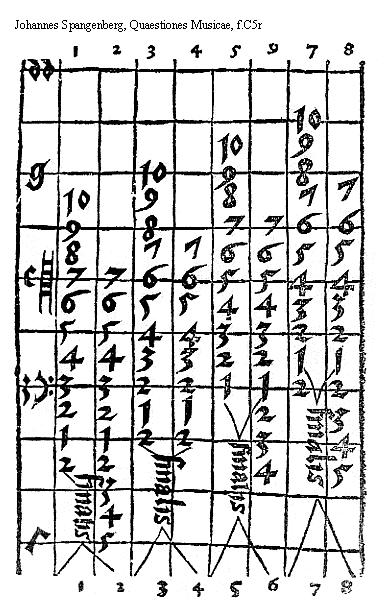 Johannes Spangenberg, Quaestiones Musicae, f.C5r
1 2 3 4 5 6 7 8
dd
10
10 9
g 10 9 8
10 9 8 7 7
9 8 7 7 6 6
8 7 7 6 6 5 5
7 7 6 6 5 5 4 4
6 6 5 5 4 4 3 3
5 5 4 4 3 3 2 2
4 4 3 3 2 2 1 1
3 3 2 2 1 1 2 2
2 2 1 1 2 finalis 3
1 1 2 2 3 4
2 2 finalis finalis 4 5
finalis 3
4
Γ 5
1 2 3 4 5 6 7 8